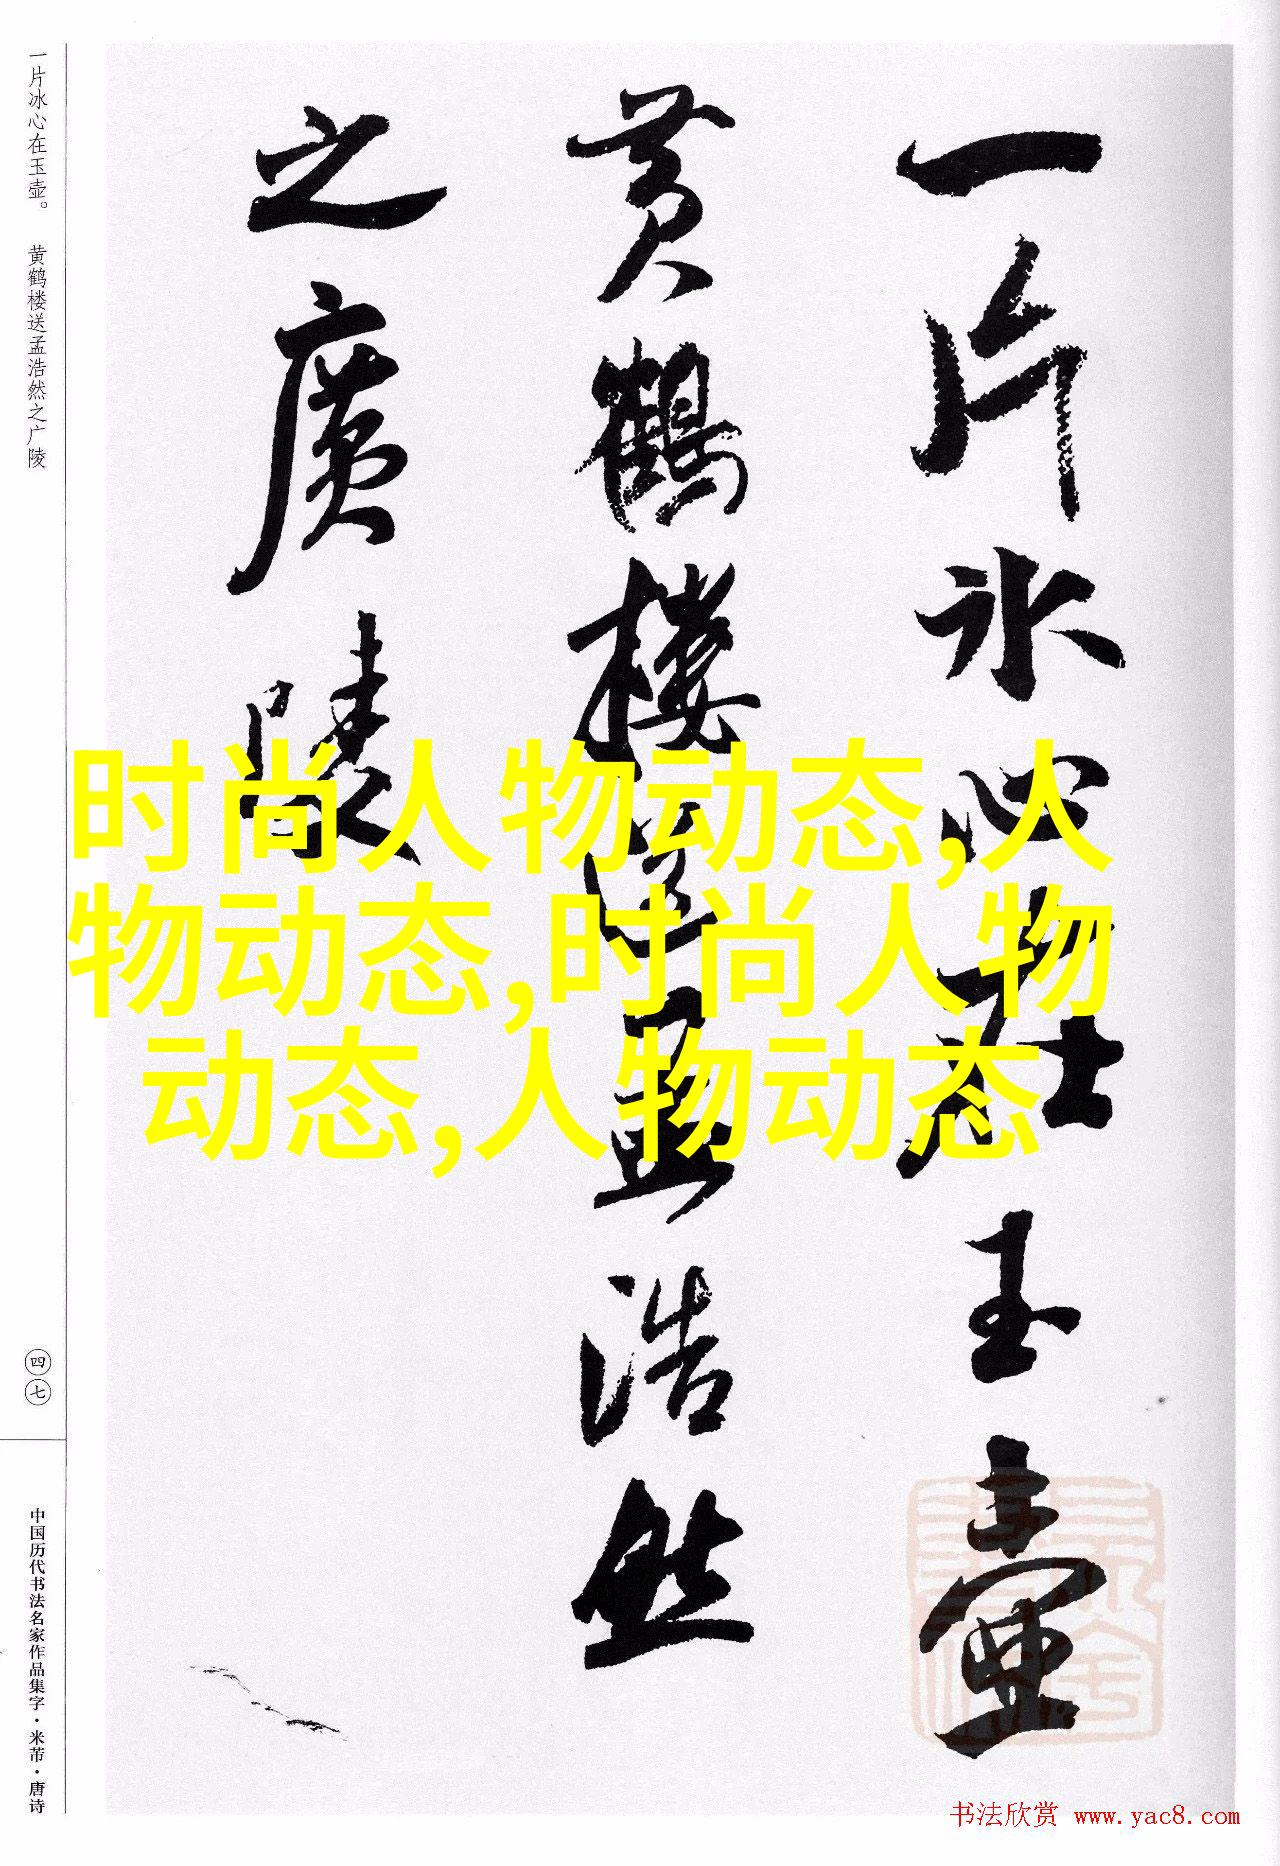 一片冰心在玉壶。 黄鹤楼送孟浩然之广陵
一片冰心在玉壺
黄鶴樓送孟浩然
之廣陵
时尚人物动态,人
物动态,时尚人物
动态,人物动态
四七
中国历代书法名家作品集字·米芾·唐诗
书法欣赏 www.yac8.com